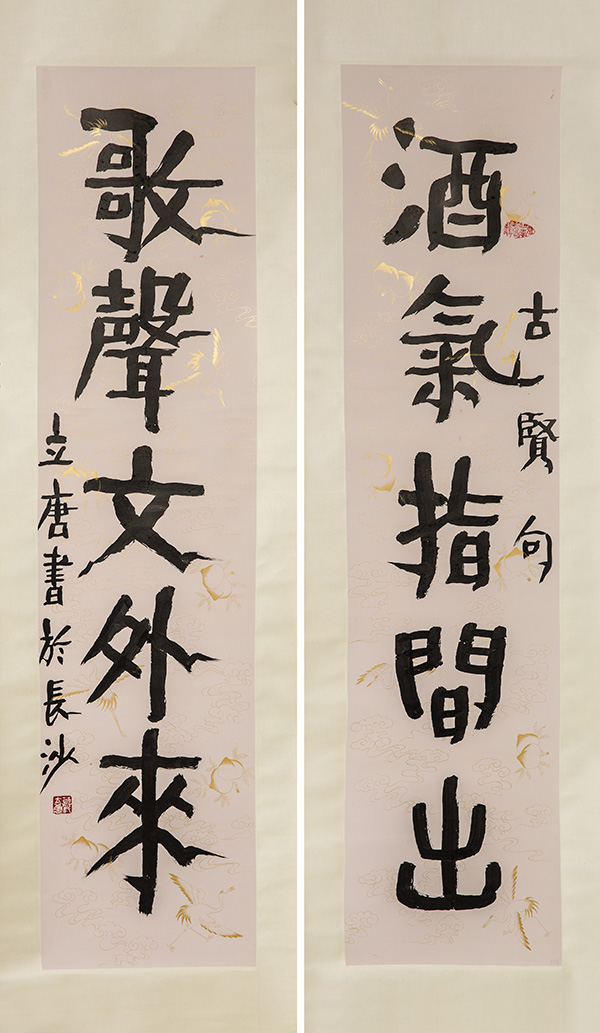 酒氣指間出
古賢句
歌聲文外來
立唐書於長沙